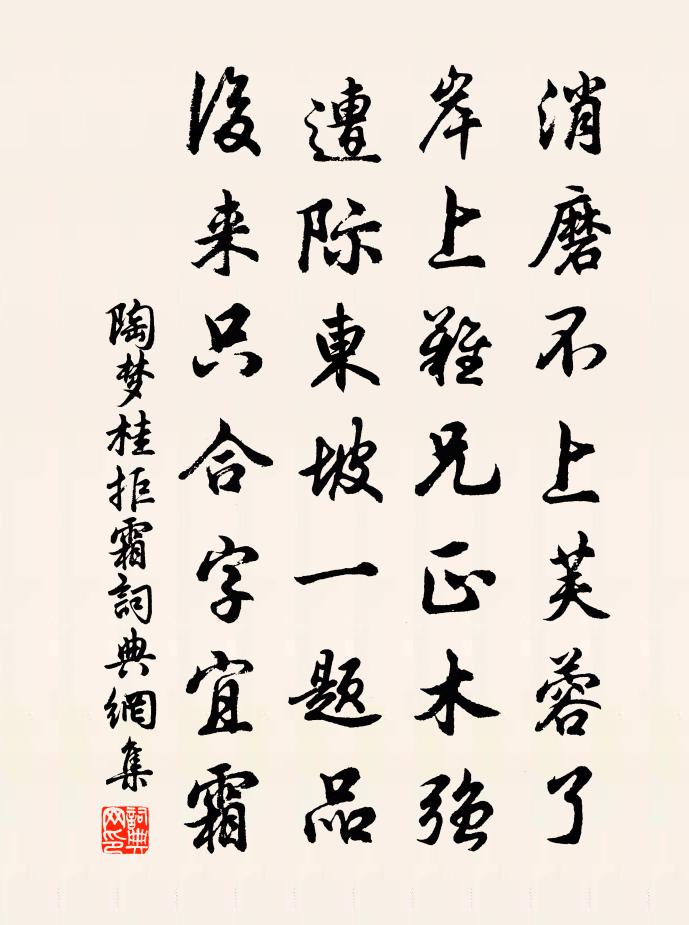 消磨不上芙蓉了
岸上難兄正木強
遭际東坡一题品
後来只合字宜霜
陶梦桂拒霜詞典網集
詞典网印